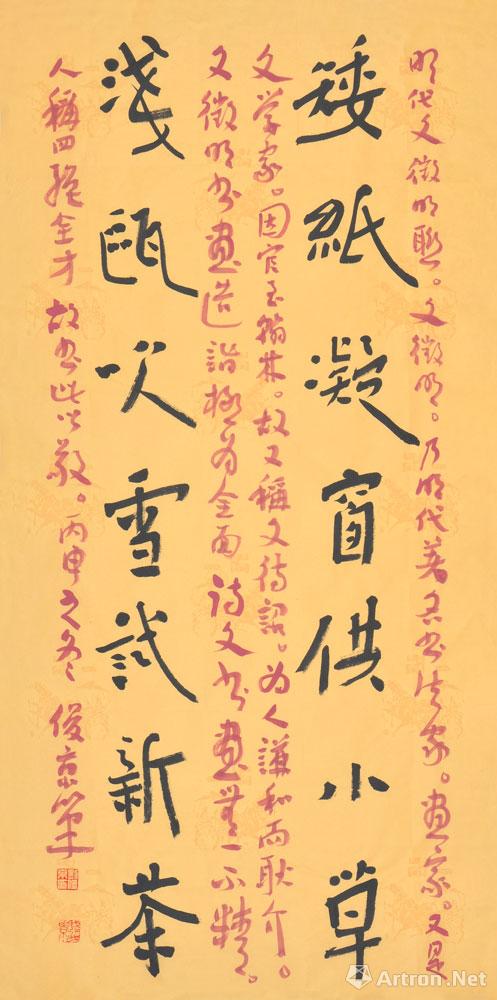 明代文徵明联。文徵明。乃明代著名书法家。画家。又是
矮紙凝窗供小草
文学家。因官至翰林。故又稱文待詔。为人謙和而耿介。
文徵明书画造詣極为全面 诗文书画無一不精。
淺甌吹雪試新茶
人稱四絕全才 故书此以敬。丙申之冬 俊京筆
Artron.Net